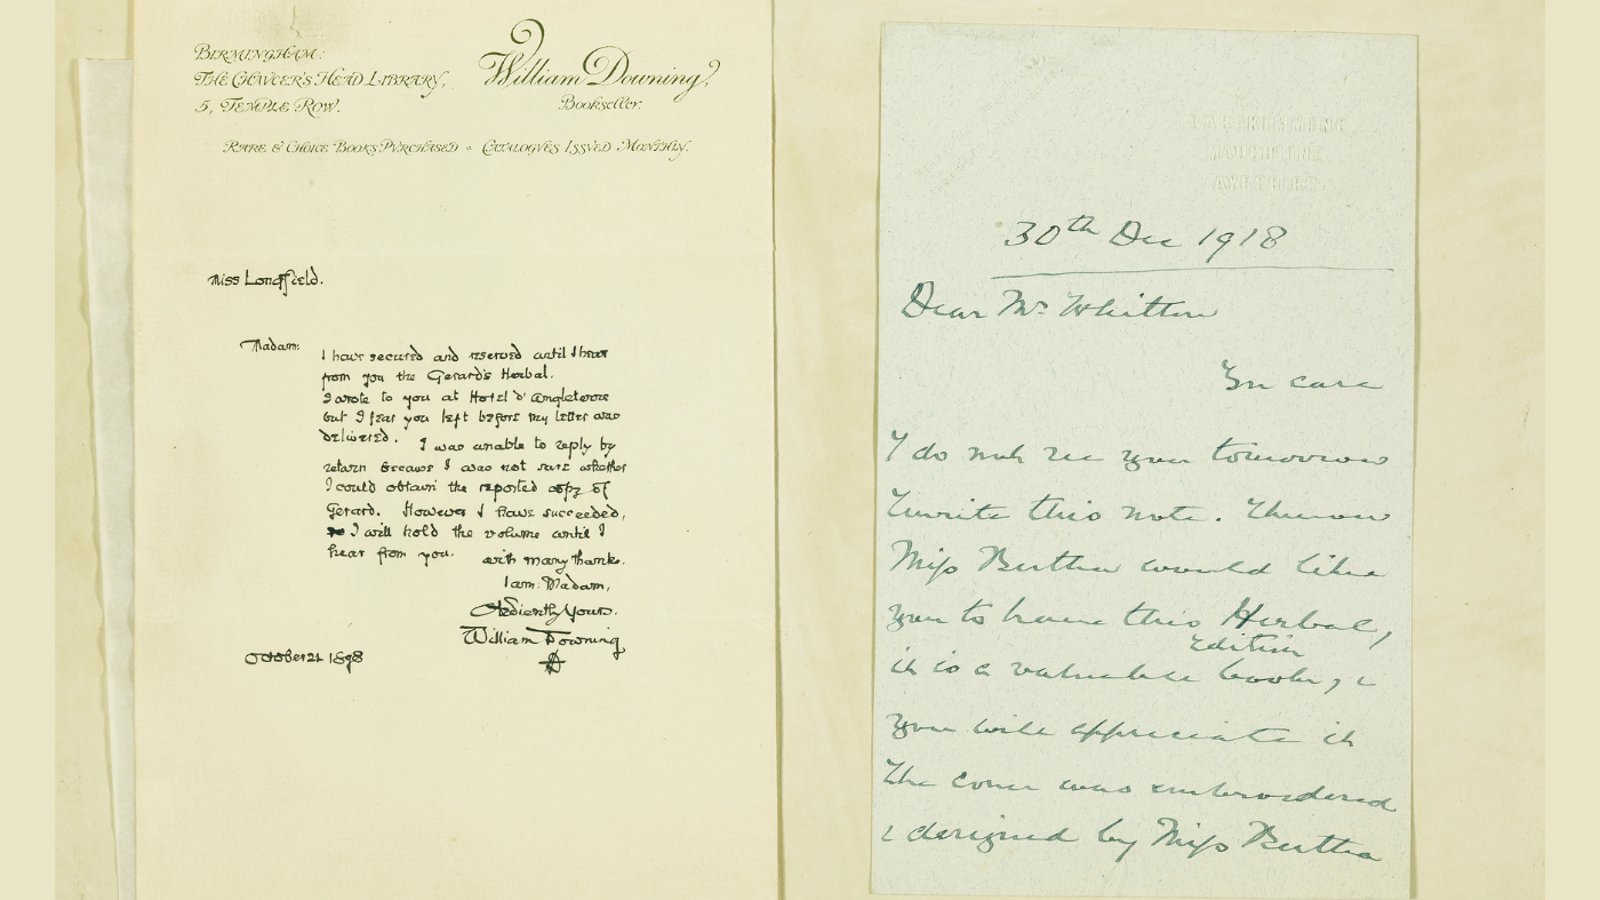 BIRMINGHAM:
THE CHAVCER'S HEAD LIBRARY,
5, TEMPLE ROW.
William Downing,
Bookseller.
RARE & CHOICE BOOKS PVRCHASED · CATALOGVES ISSVED MONTHLY.
Miss Longfield.
Madam:
I have secured and reserved until I hear
from you the Gerard's Herbal.
I wrote to you at Hotel d'Angleterre
but I fear you left before my letter was
delivered. I was unable to reply by
return because I was not sure whether
I could obtain the reported copy of
Gerard. However I have succeeded,
I will hold the volume until I
hear from you. with many thanks.
I am: Madam,
Obediently Yours.
William Downing
October 21 1898
MAUCHLINE
AYRSHIRE.
30th Dec 1918
Dear Mr Whitton
In case
I do not see you tomorrow
I write this note.
Miss Bertha would like
you to have this Herbal,
Edition
it is a valuable book, &
you will appreciate it
The cover was embroidered
& designed by Miss Bertha